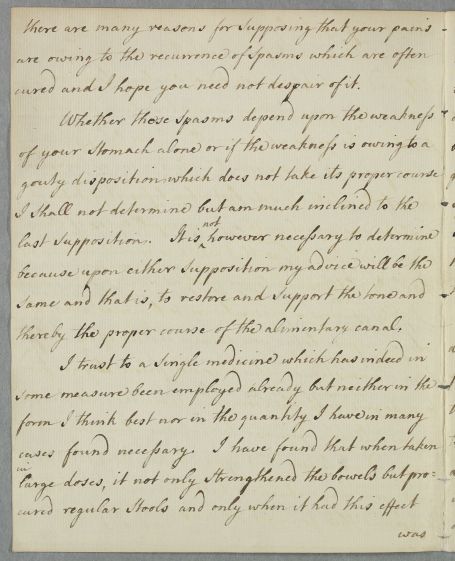 there are many reasons for supposing that your pains
are owing to the recurrence of spasms which are often
cured and I hope you need not despair of it.
Whether those spasms depend upon the weakness
of your stomach alone or if the weakness is owing to a
gouty disposition which does not take its proper course
I shall not determine but am much inclined to the
last supposition. It is not however necessary to determine
because upon either supposition my advice will be the
same and that is, to restore and support the tone and
thereby the proper course of the alimentary canal.
I trust to a single medicine which has indeed in
some measure been employed already but neither in the
form I think best nor in the quantity I have in many
cases found necessary. I have found that when taken
in large doses, it not only strengthened the bowels but pro=
cured regular stools and only when it had this effect
was